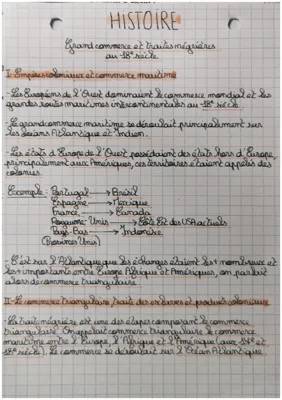 HISTOIRE
Grand commerce et traites négrières
au 18e siècle
I- Empires coloniaux et commerce maritime
- Les Européens de l'Ouest dominaient le commerce mondial et les
grandes routes maritimes intercontinentales au 18e siècle
- Le grand commerce maritime se déroulait principalement sur
les océans Atlantique et Indien.
- Les états d'Europe de l'Ouest possédaient des états hors d'Europe,
principalement aux Amériques, ces territoires étaient appelés des
colonies.
Exemple - Portugal → Brésil
Espagne → Mexique
France → Canada
Royaume-Unis → Est des USA actuels
Pays-Bas → Indonésie
(Provinces Unies)
- C'est sur l'Atlantique que les échanges étaient les + nombreux et
les + importants entre Europe Afrique et Amériques, on parlait
alors de commerce triangulaire
II- Le commerce triangulaire traite des esclaves et produits coloniaux
- La traite négrière est une des étapes composant le commerce
triangulaire. On appelait commerce triangulaire le commerce
maritime entre l'Europe, l'Afrique et l'Amérique (aux et
18e siècle). Le commerce se déroulait sur l'Océan Atlantique.